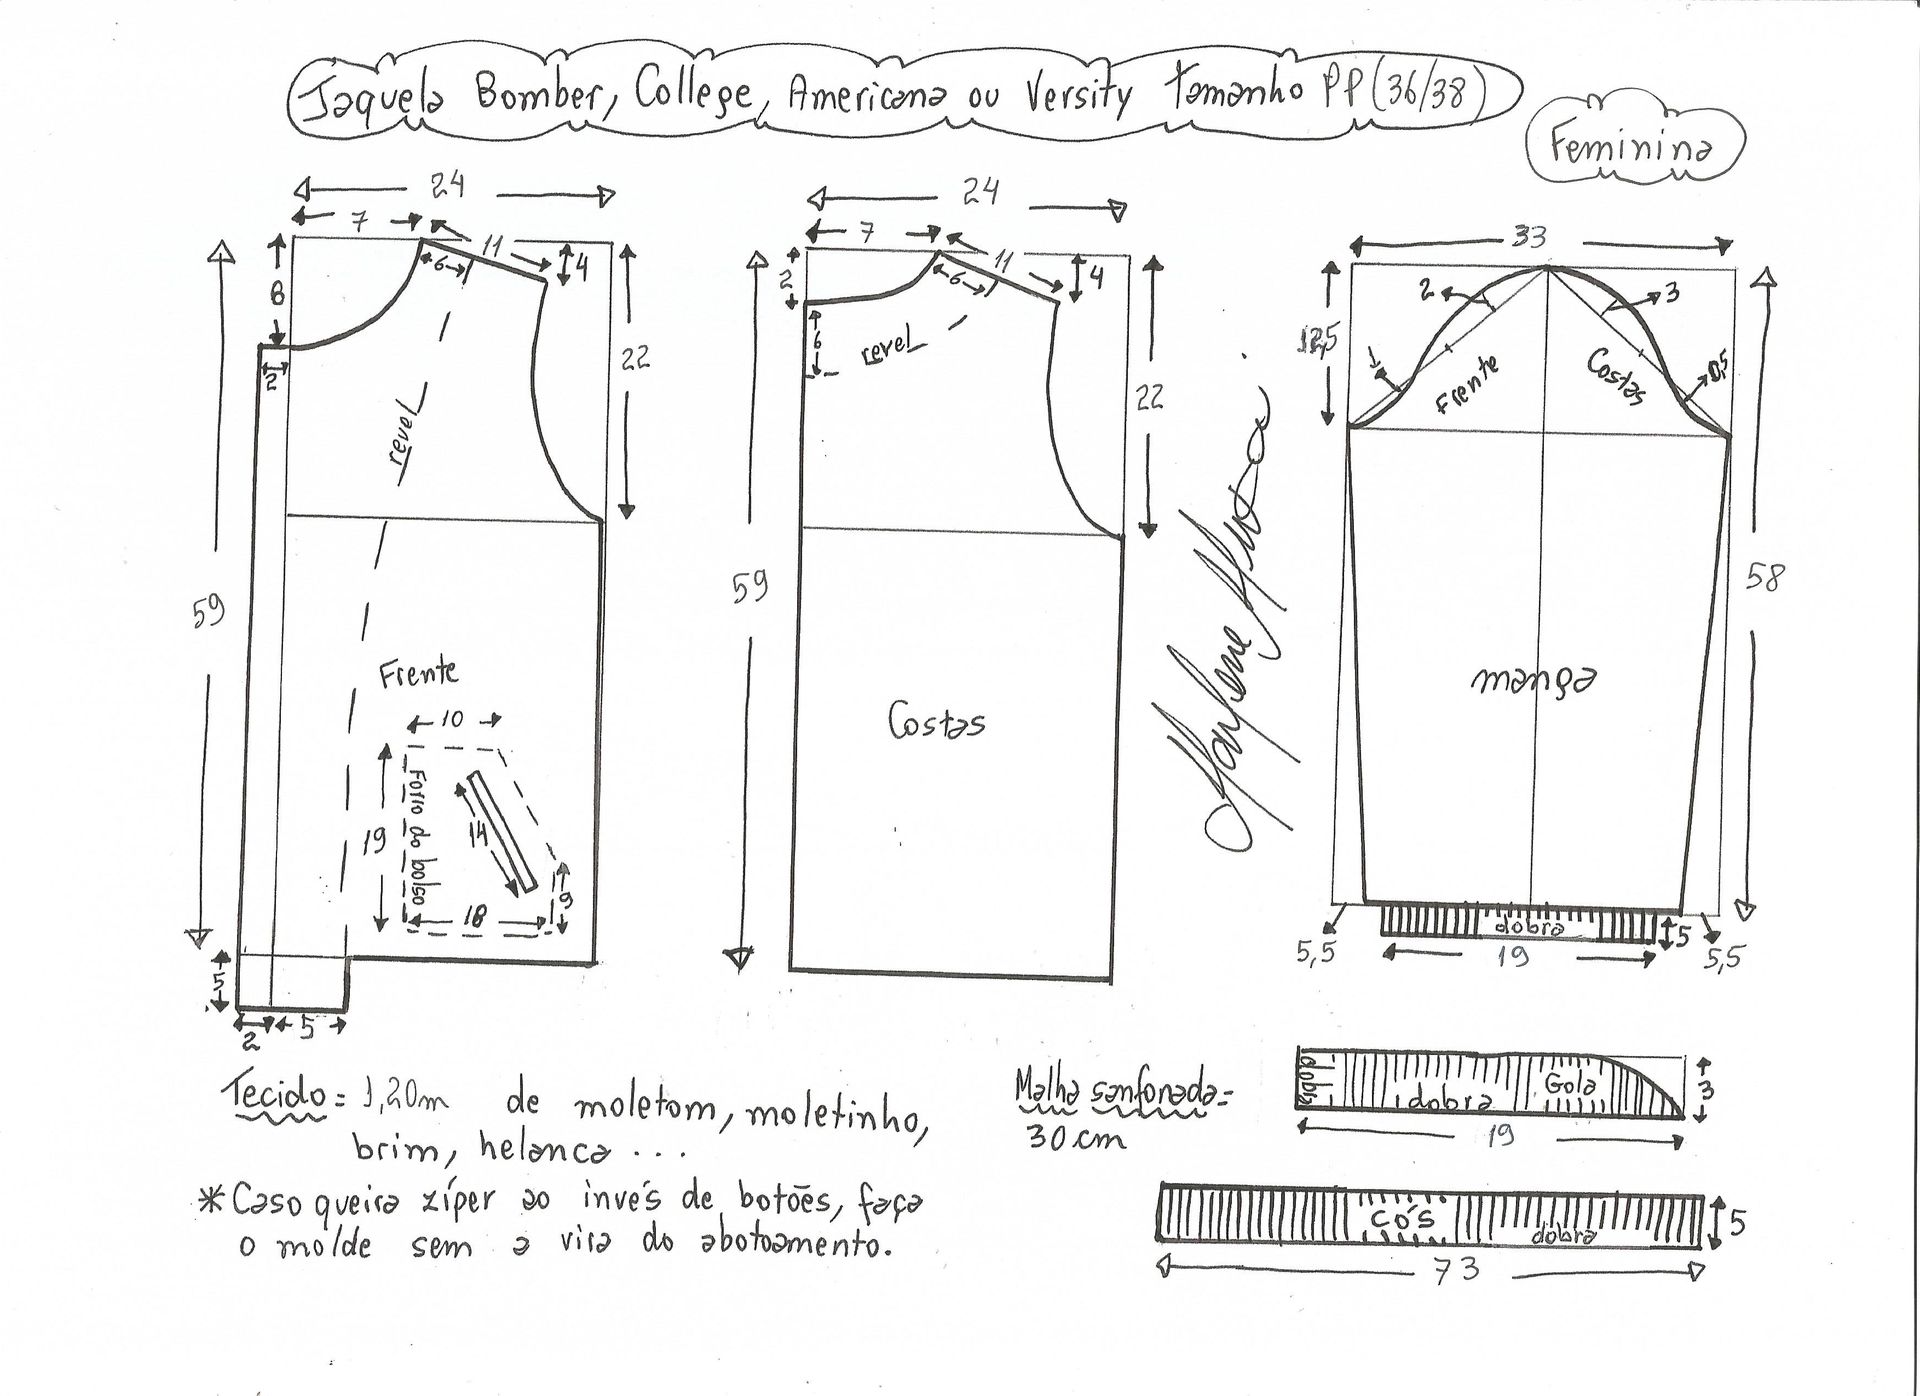 Jaqueta Bomber, College, Americana ou Versity Tamanho PP (36/38)
Feminina
24
7
11
6
4
8
2
22
59
revel
Frente
10
19
Forro do bolso
14
18
9
5
2
5
24
7
11
6
4
2
6
revel
22
59
Costas
33
12,5
2
3
1
0,5
Frente
Costas
58
manga
dobra
5
5,5
19
5,5
Tecido = 1,20m de moletom, moletinho,
brim, helanca ...
* Caso queira zíper ao invés de botões, faça
o molde sem a vira do abotoamento.
Malha sanfonada =
30 cm
dobra
dobra
Gola
3
19
cós
dobra
5
73